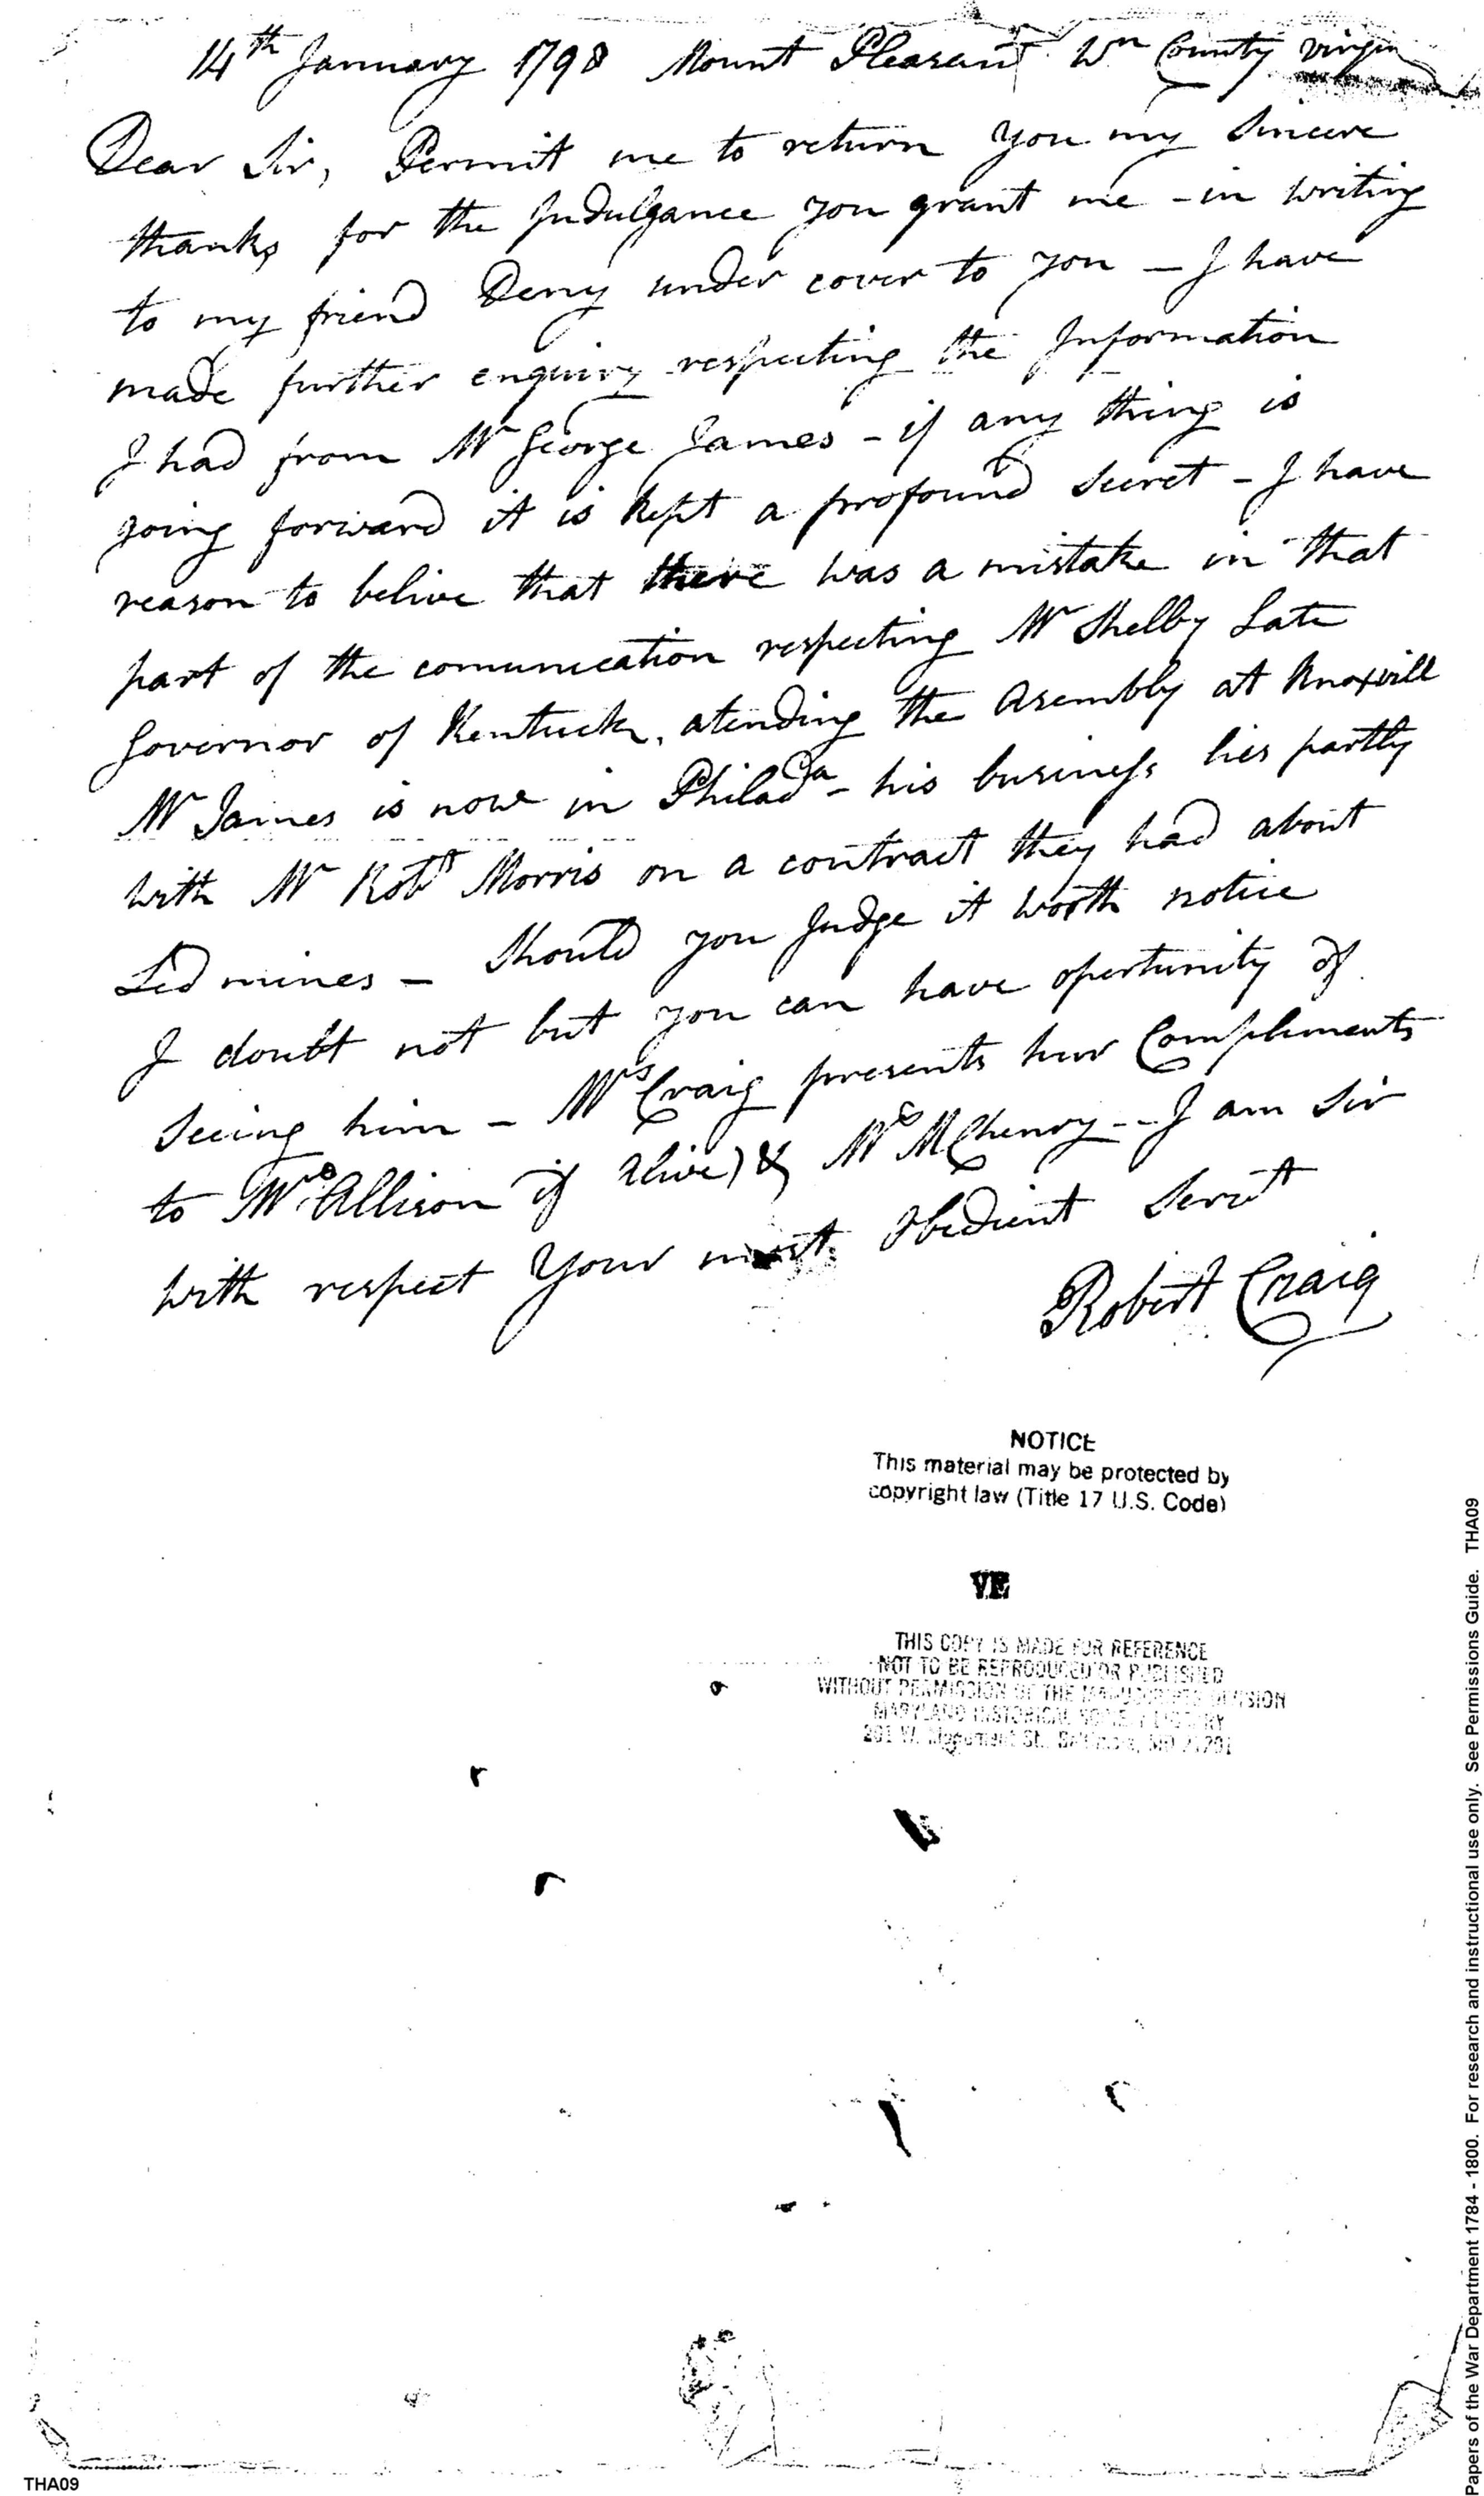 14th January 1798 Mount Pleasant Wn County virgin
Dear Sir, Permit me to return you my Sincere
thanks for the Indulgance you grant me - in writing
to my friend Deny under cover to you — I have
made further enquiry respecting the Information
I had from Mr George James - if any thing is
going forward it is kept a profound Secret - I have
reason to belive that there was a mistake in that
part of the comunication respecting Mr Shelby Late
Governor of Kentuck, atending the Asembly at Knoxvill
Mr James is now in Philada - his business lies partly
with Mr Robt Morris on a contract they had about
Led mines — Should you Judge it worth notice
I doubt not but you can have opertunity of
Seeing him — Mrs Craig presents hur Compliments
to Mrs Allison if alive) & Mrs McHenry -- I am Sir
with respect Your most obedient Servt
Robert Craig
NOTICE
This material may be protected by
copyright law (Title 17 U.S. Code)
THIS COPY IS MADE FOR REFERENCE
NOT TO BE REPRODUCED OR PUBLISHED
WITHOUT PERMISSION OF THE MANUSCRIPTS DIVISION
MARYLAND HISTORICAL SOCIETY LIBRARY
201 W. Monument St., Baltimore, MD 21201
THA09
Papers of the War Department 1784 - 1800. For research and instructional use only. See Permissions Guide. THA09